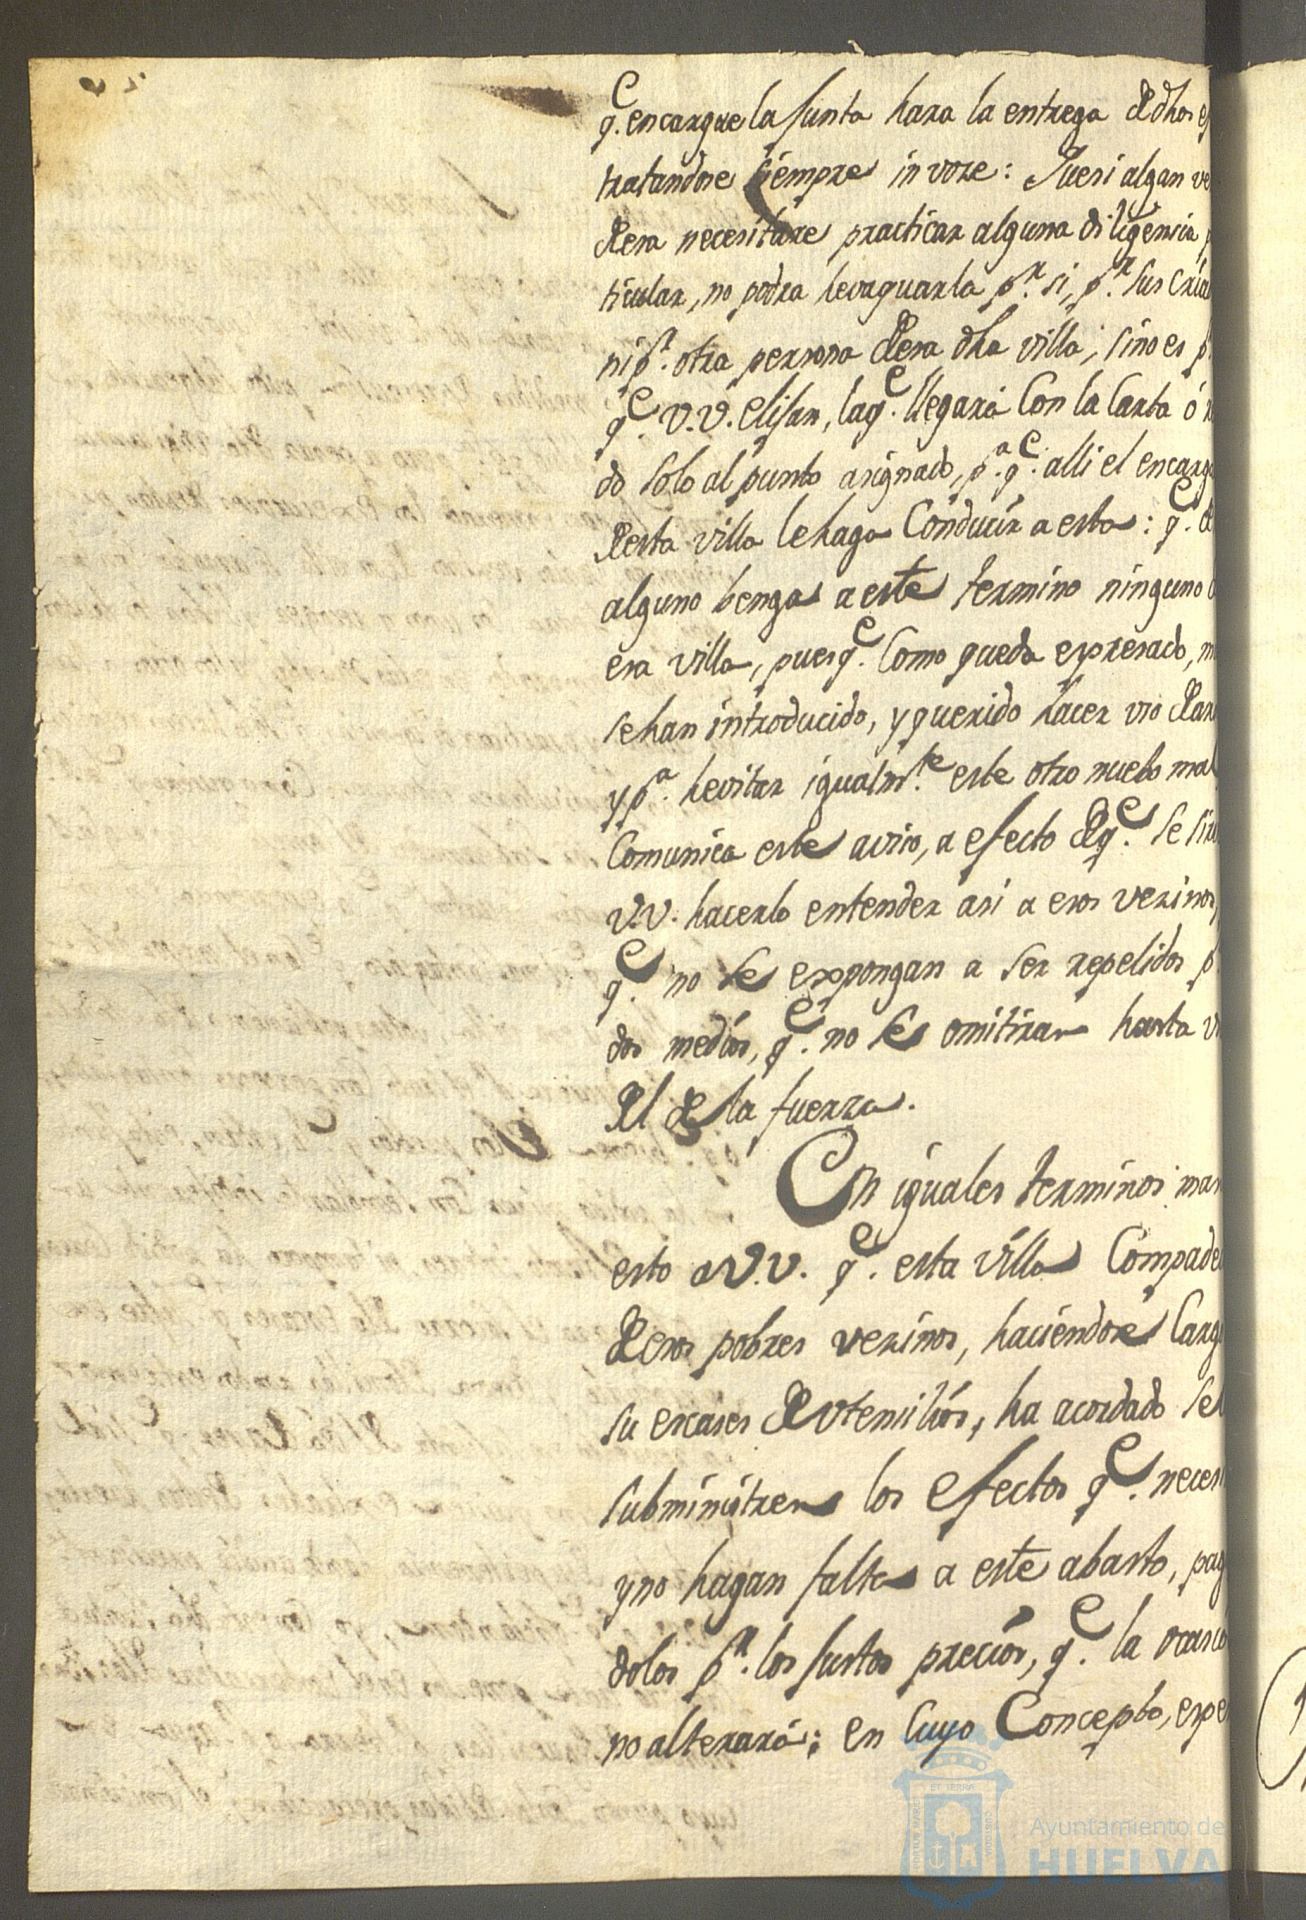 q.e encargue la Junta hara la entrega de dhos
tratandose siempre in voze: Y si algun
de esa necesitare practicar alguna diligencia
ticular, no podra hevaquarla p.r si, p.r sus
ni p.r otra persona de esa dha villa, sino es
q.e V.V. elijan, la q.e llegará con la Carta ó
do solo al punto asignado, p.a q.e alli el
de esta villa le haga Conducir a esta: q.e
alguno benga a este termino ninguno
esa villa, pues q.e Como queda expresado,
se han introducido, y querido hacer uso
y p.a hevitar igualm.te este otro nuebo mal
Comunica este aviso, a efecto de q.e se
V.V. hacerlo entender asi a esos vezinos,
q.e no se expongan a ser repelidos
dos medios, q.e no se omitiran hasta
el de la fuerza.
En iguales terminos
esto a V.V. q.e esta villa
de esos pobres vezinos, haciendose
su escases de utensilios, ha acordado se
subministren los efectos q.e
y no hagan falta a este abasto,
dolos p.r los justos precios, q.e la
no alterará; en cuyo Concepto,
ET TERRA
Ayuntamiento de
HUELVA